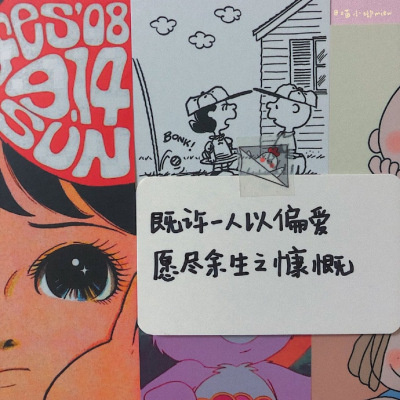 es'08
9.14
SUN
BONK!
既许一人以偏爱
愿尽余生之慷慨